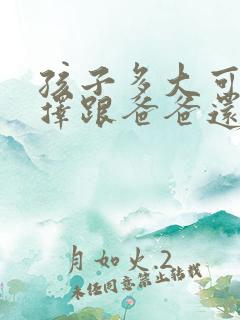 孩子多大可
择跟爸爸还
月如火.2
未经同意禁止转载